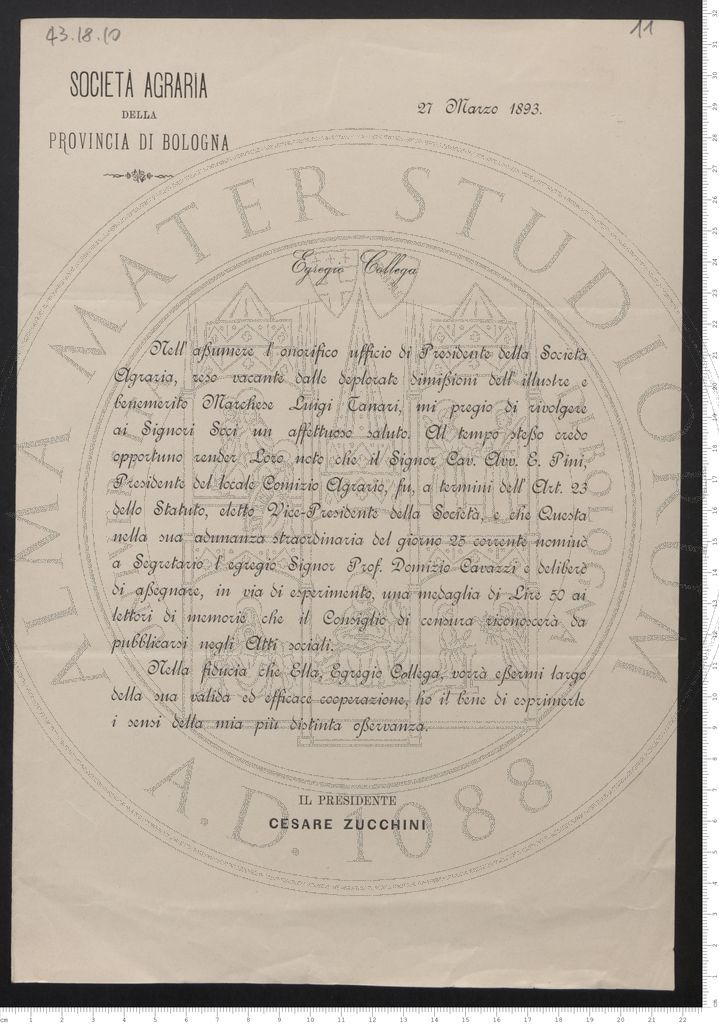 43.18.10
11
SOCIETÀ AGRARIA
DELLA
PROVINCIA DI BOLOGNA
27 Marzo 1893.
Egregio Collega
Nell' aßumere l' onorifico ufficio di Presidente della Società
Agraria, reso vacante dalle deplorate dimißioni dell' illustre e
benemerito Marchese Luigi Tanari, mi pregio di rivolgere
ai Signori Soci un affettuoso saluto. Al tempo steßo credo
opportuno render Loro noto che il Signor Cav. Avv. E. Pini,
Presidente del locale Comizio Agrario, fu, a termini dell' Art. 23
dello Statuto, eletto Vice-Presidente della Società, e che Questa
nella sua adunanza straordinaria del giorno 25 corrente nominò
a Segretario l' egregio Signor Prof. Domizio Cavazzi e deliberò
di aßegnare, in via di esperimento, una medaglia di Lire 50 ai
lettori di memorie che il Consiglio di censura riconoscerà da
pubblicarsi negli Atti sociali.
Nella fiducia che Ella, Egregio Collega, vorrà eßermi largo
della sua valida ed efficace cooperazione, ho il bene di esprimerle
i sensi della mia più distinta oßervanza.
IL PRESIDENTE
CESARE ZUCCHINI
ALMA MATER STUDIORUM
A.D. 1088